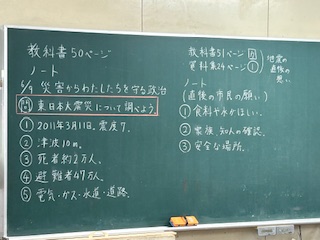 教科書50ページ
ノート
6/9 災害からわたしたちを守る政治
東日本大震災について調べよう。
① 2011年3月11日。震度7。
② 津波10m。
③ 死者約2万人。
④ 避難者47万人。
⑤ 電気・ガス・水道・道路。
教科書51ページ
資料集24ページ ①
地震の
直後の
思い
ノート
(直後の市民の願い)
① 食料や水がほしい。
② 家族、知人の確認。
③ 安全な場所。